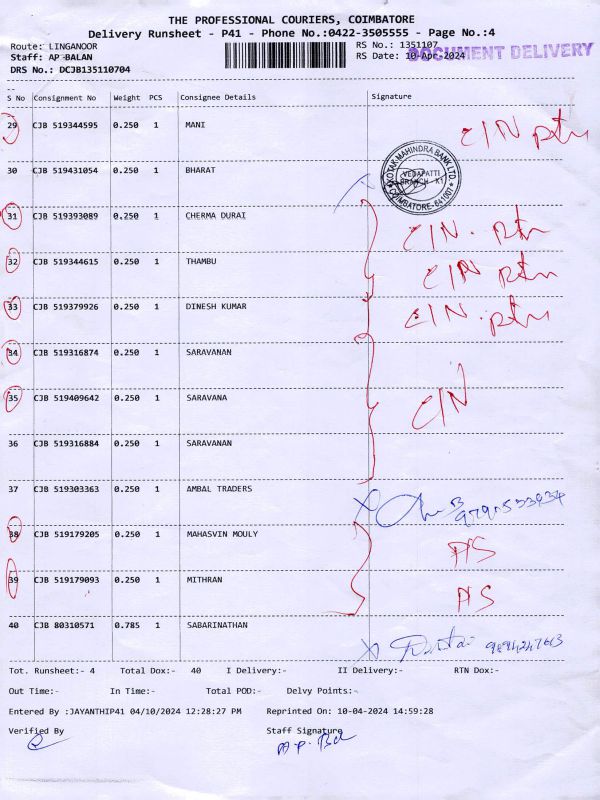 THE PROFESSIONAL COURIERS, COIMBATORE
Delivery Runsheet - P41 - Phone No.:0422-3505555 - Page No.:4
Route: LINGANOOR RS No.: 1351107
Staff: AP BALAN RS Date: 10-Apr-2024 DOCUMENT DELIVERY
DRS No.: DCJB135110704
S No Consignment No Weight PCS Consignee Details Signature
29 CJB 519344595 0.250 1 MANI C/N rtn
30 CJB 519431054 0.250 1 BHARAT
KOTAK MAHINDRA BANK LTD.
VEDAPATTI
BRANCH
COIMBATORE-641007
31 CJB 519393089 0.250 1 CHERMA DURAI C/N. rtn
32 CJB 519344615 0.250 1 THAMBU C/N rtn
33 CJB 519379926 0.250 1 DINESH KUMAR C/N. rtn
34 CJB 519316874 0.250 1 SARAVANAN
35 CJB 519409642 0.250 1 SARAVANA C/N
36 CJB 519316884 0.250 1 SARAVANAN
37 CJB 519303363 0.250 1 AMBAL TRADERS
38 CJB 519179205 0.250 1 MAHASVIN MOULY AS
39 CJB 519179093 0.250 1 MITHRAN AS
40 CJB 80310571 0.785 1 SABARINATHAN
Tot. Runsheet:- 4 Total Dox:- 40 I Delivery:- II Delivery:- RTN Dox:-
Out Time:- In Time:- Total POD:- Delvy Points:-
Entered By :JAYANTHIP41 04/10/2024 12:28:27 PM Reprinted On: 10-04-2024 14:59:28
Verified By Staff Signature